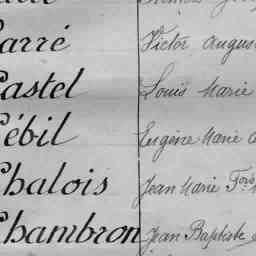 Carré Victor Augus
Castel Louis Marie
Cébil Eugène Marie
Chalois Jean Marie Fçois
Chambron Jean Baptiste